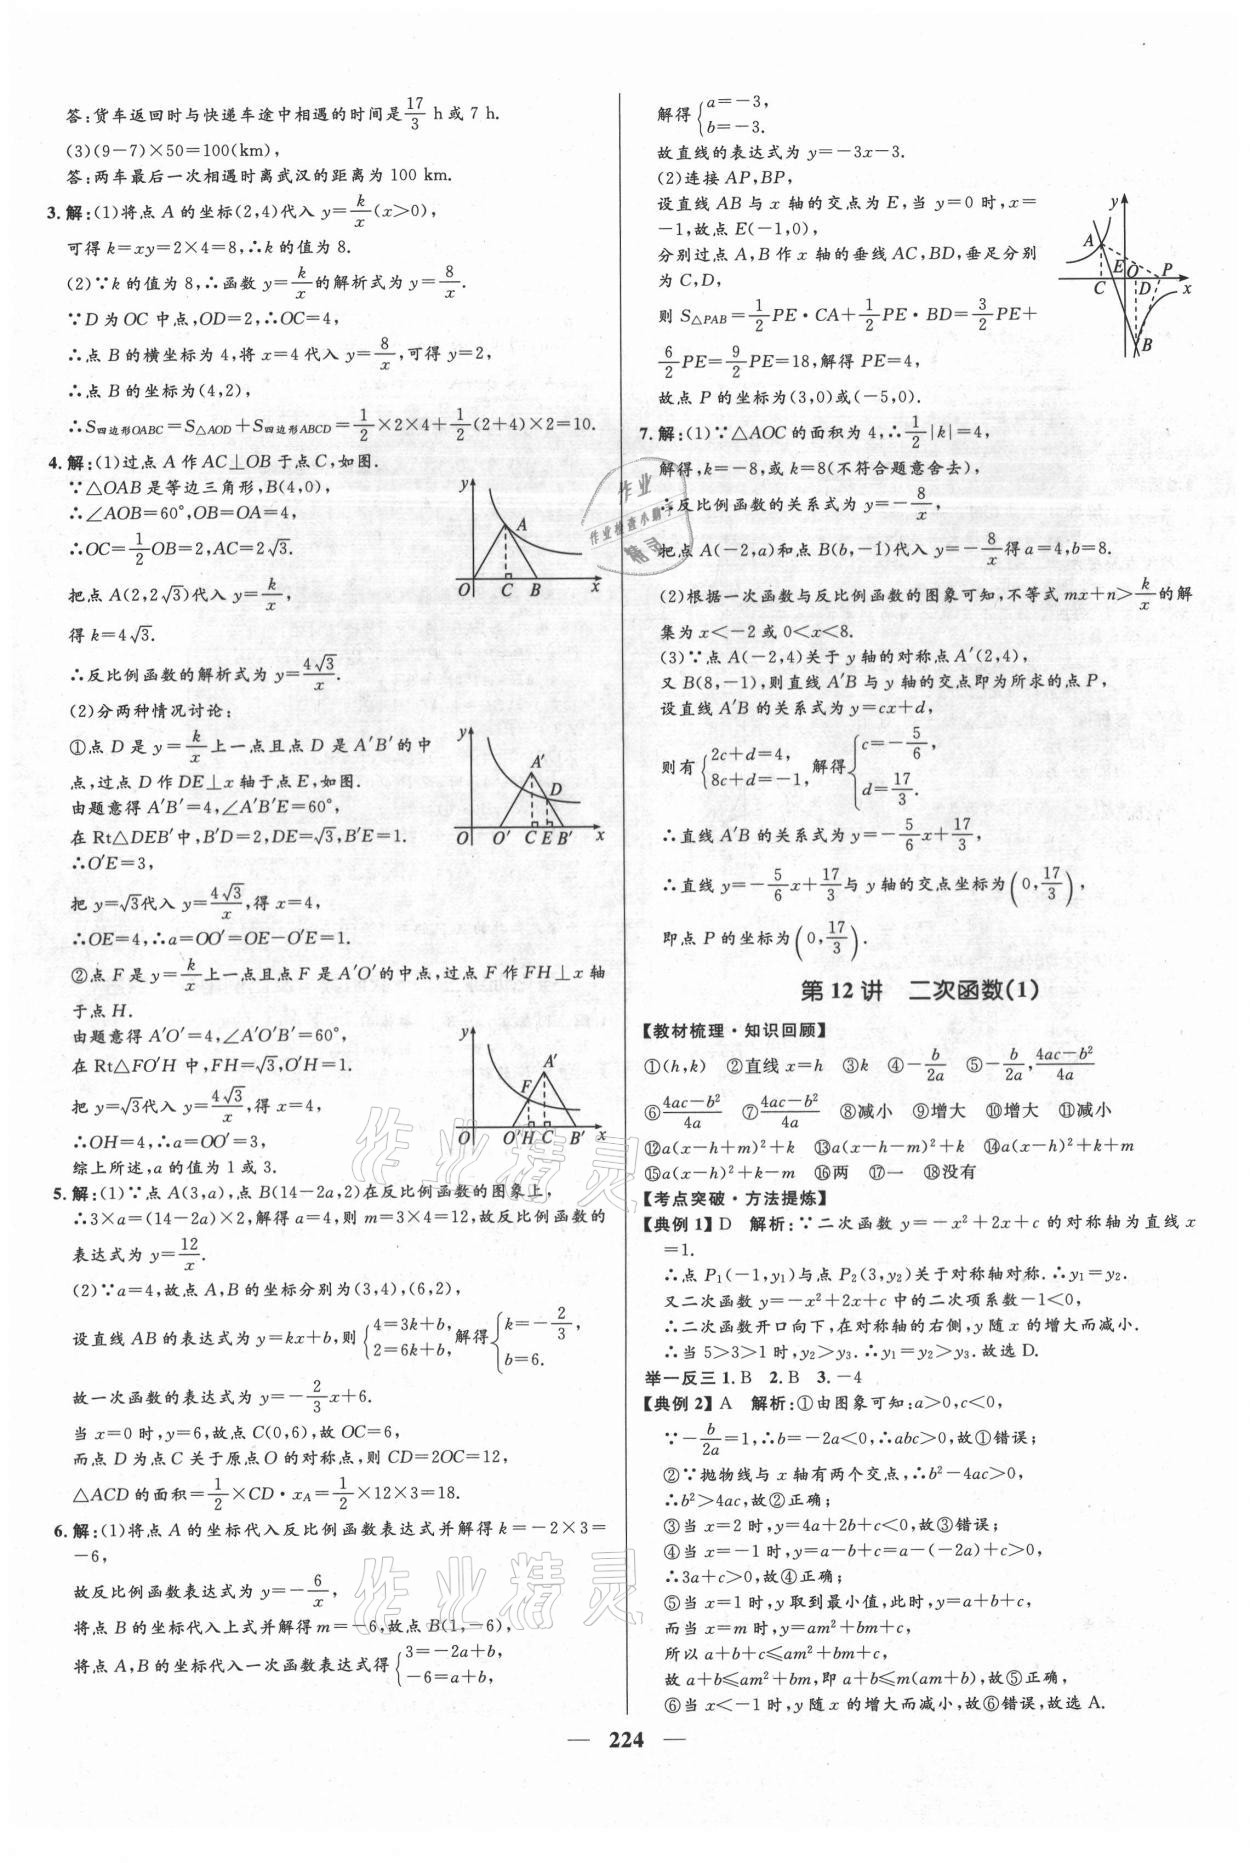 答:货车返回时与快递车途中相遇的时间是17/3 h或7 h.
(3)(9-7)×50=100(km),
答:两车最后一次相遇时离武汉的距离为100 km.
3.解:(1)将点A的坐标(2,4)代入y=k/x(x>0),
可得k=xy=2×4=8,∴k的值为8.
(2)∵k的值为8,∴函数y=k/x的解析式为y=8/x.
∵D为OC中点,OD=2,∴OC=4,
∴点B的横坐标为4,将x=4代入y=8/x,可得y=2,
∴点B的坐标为(4,2),
∴S四边形OABC=S△AOD+S四边形ABCD=1/2×2×4+1/2(2+4)×2=10.
4.解:(1)过点A作AC⊥OB于点C,如图.
∵△OAB是等边三角形,B(4,0),
∴∠AOB=60°,OB=OA=4,
∴OC=1/2OB=2,AC=2√3.
把点A(2,2√3)代入y=k/x,
得k=4√3.
∴反比例函数的解析式为y=4√3/x.
y
A
O C B x
(2)分两种情况讨论:
①点D是y=k/x上一点且点D是A′B′的中
点,过点D作DE⊥x轴于点E,如图.
由题意得A′B′=4,∠A′B′E=60°,
在Rt△DEB′中,B′D=2,DE=√3,B′E=1.
∴O′E=3,
把y=√3代入y=4√3/x,得x=4,
∴OE=4,∴a=OO′=OE-O′E=1.
y
A′
D
O O′ C E B′ x
②点F是y=k/x上一点且点F是A′O′的中点,过点F作FH⊥x轴
于点H.
由题意得A′O′=4,∠A′O′B′=60°,
在Rt△FO′H中,FH=√3,O′H=1.
把y=√3代入y=4√3/x,得x=4,
∴OH=4,∴a=OO′=3,
综上所述,a的值为1或3.
y
A′
F
O O′H C B′ x
5.解:(1)∵点A(3,a),点B(14-2a,2)在反比例函数的图象上,
∴3×a=(14-2a)×2,解得a=4,则m=3×4=12,故反比例函数的
表达式为y=12/x.
(2)∵a=4,故点A,B的坐标分别为(3,4),(6,2),
设直线AB的表达式为y=kx+b,则{4=3k+b, 2=6k+b, 解得{k=-2/3, b=6.
故一次函数的表达式为y=-2/3x+6.
当x=0时,y=6,故点C(0,6),故OC=6,
而点D为点C关于原点O的对称点,则CD=2OC=12,
△ACD的面积=1/2×CD·xA=1/2×12×3=18.
6.解:(1)将点A的坐标代入反比例函数表达式并解得k=-2×3=
-6,
故反比例函数表达式为y=-6/x,
将点B的坐标代入上式并解得m=-6,故点B(1,-6),
将点A,B的坐标代入一次函数表达式得{3=-2a+b, -6=a+b,
解得{a=-3, b=-3.
故直线的表达式为y=-3x-3.
(2)连接AP,BP,
设直线AB与x轴的交点为E,当y=0时,x=
-1,故点E(-1,0),
分别过点A,B作x轴的垂线AC,BD,垂足分别
为C,D,
则S△PAB=1/2PE·CA+1/2PE·BD=3/2PE+
6/2PE=9/2PE=18,解得PE=4,
故点P的坐标为(3,0)或(-5,0).
y
A
E O P
C D x
B
7.解:(1)∵△AOC的面积为4,∴1/2|k|=4,
解得,k=-8,或k=8(不符合题意舍去),
∴反比例函数的关系式为y=-8/x,
把点A(-2,a)和点B(b,-1)代入y=-8/x得a=4,b=8.
(2)根据一次函数与反比例函数的图象可知,不等式mx+n>k/x的解
集为x<-2或0<x<8.
(3)∵点A(-2,4)关于y轴的对称点A′(2,4),
又B(8,-1),则直线A′B与y轴的交点即为所求的点P,
设直线A′B的关系式为y=cx+d,
则有{2c+d=4, 8c+d=-1, 解得{c=-5/6, d=17/3.
∴直线A′B的关系式为y=-5/6x+17/3,
∴直线y=-5/6x+17/3与y轴的交点坐标为(0,17/3),
即点P的坐标为(0,17/3).
第12讲 二次函数(1)
【教材梳理·知识回顾】
①(h,k) ②直线x=h ③k ④-b/2a ⑤-b/2a,4ac-b²/4a
⑥4ac-b²/4a ⑦4ac-b²/4a ⑧减小 ⑨增大 ⑩增大 ⑪减小
⑫a(x-h+m)²+k ⑬a(x-h-m)²+k ⑭a(x-h)²+k+m
⑮a(x-h)²+k-m ⑯两 ⑰一 ⑱没有
【考点突破·方法提炼】
【典例1】D 解析:∵二次函数y=-x²+2x+c的对称轴为直线x
=1.
∴点P₁(-1,y₁)与点P₂(3,y₂)关于对称轴对称.∴y₁=y₂.
又二次函数y=-x²+2x+c中的二次项系数-1<0,
∴二次函数开口向下,在对称轴的右侧,y随x的增大而减小.
∴当5>3>1时,y₂>y₃.∴y₁=y₂>y₃.故选D.
举一反三 1.B 2.B 3.-4
【典例2】A 解析:①由图象可知:a>0,c<0,
∵-b/2a=1,∴b=-2a<0,∴abc>0,故①错误;
②∵抛物线与x轴有两个交点,∴b²-4ac>0,
∴b²>4ac,故②正确;
③当x=2时,y=4a+2b+c<0,故③错误;
④当x=-1时,y=a-b+c=a-(-2a)+c>0,
∴3a+c>0,故④正确;
⑤当x=1时,y取到最小值,此时,y=a+b+c,
而当x=m时,y=am²+bm+c,
所以a+b+c≤am²+bm+c,
故a+b≤am²+bm,即a+b≤m(am+b),故⑤正确,
⑥当x<-1时,y随x的增大而减小,故⑥错误,故选A.
— 224 —
作业
作业检查小助手
精灵
作业精灵
作业精灵